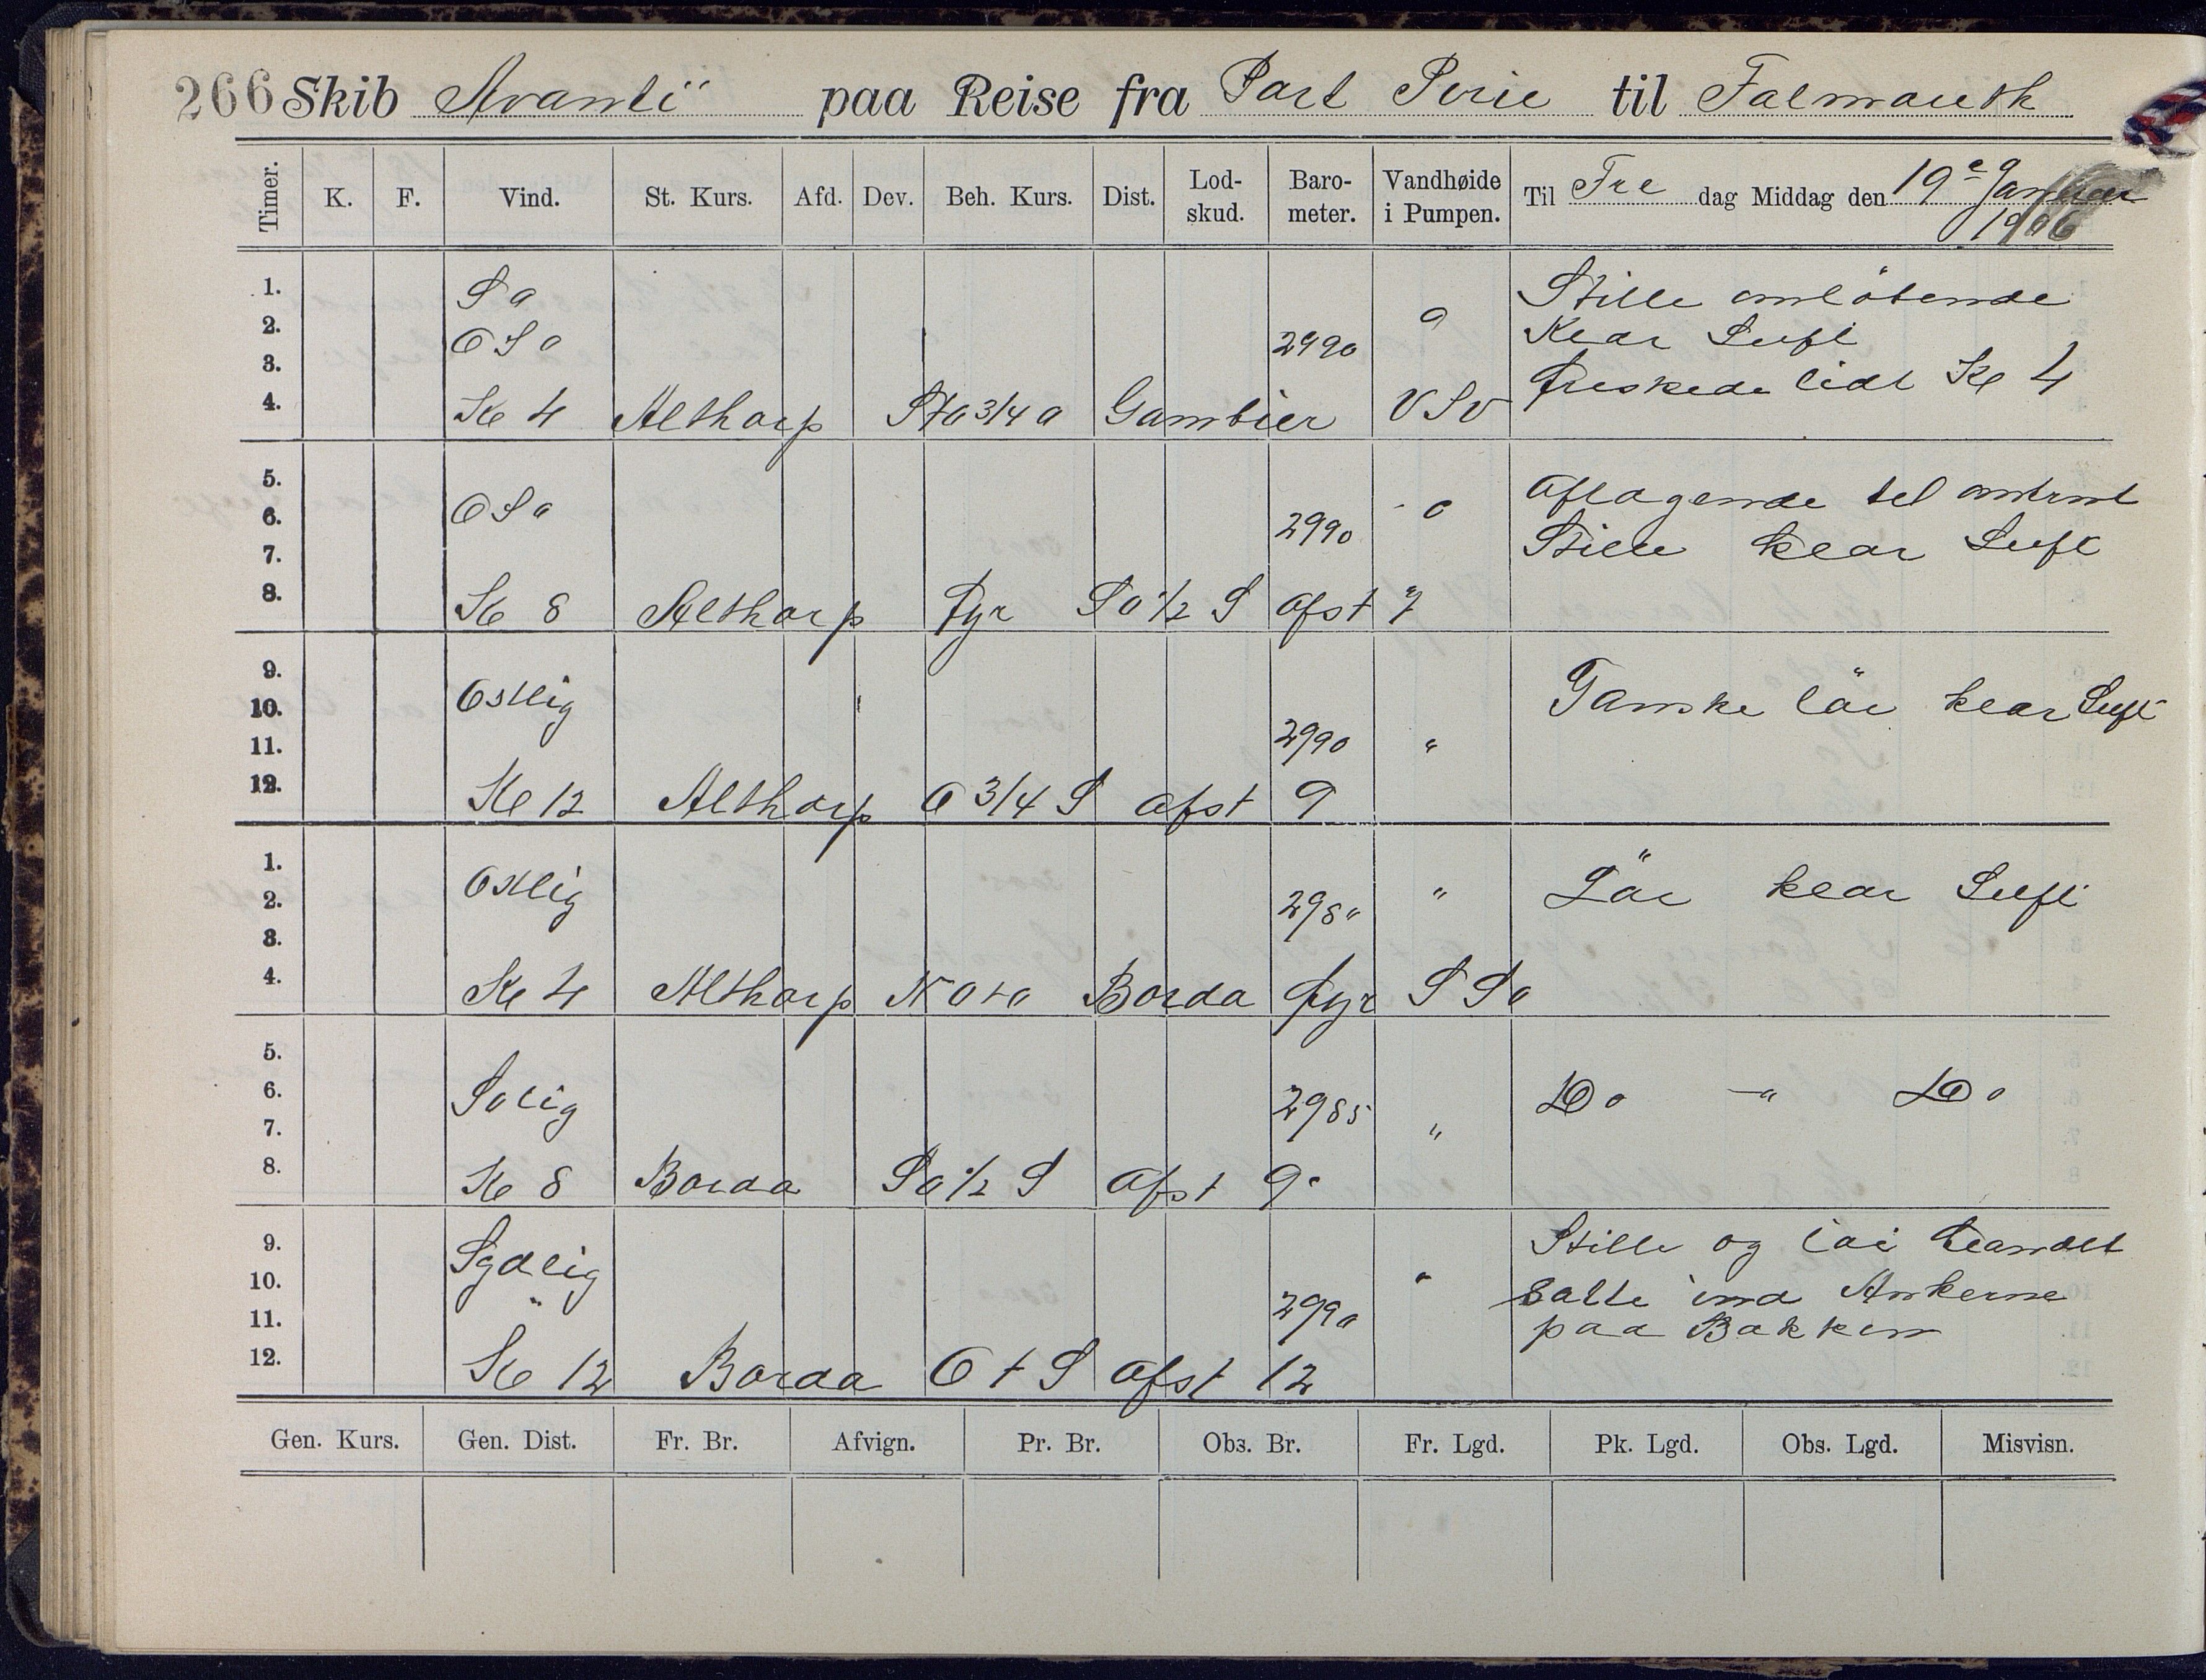 266 Skib Avanti paa Reise fra Port Pirie til Falmouth
Timer. K. F. Vind. St. Kurs. Afd. Dev. Beh. Kurs. Dist. Lod-skud. Baro-meter. Vandhøide i Pumpen. Til Fre dag Middag den 19e Januar 1906
1. So Stille omløbende
2. OSo 2990 0 Klar Luft
3. friskede lidt Kl 4
4. Kl 4 Althorp Sto 3/4 o Gambier VSV
5. aflagende til omtrent
6. OSo 2990 0
7. Stille klar Luft
8. Kl 8 Althorp fyr So 1/2 S afst 7
9.
10. Ostlig Ganske löi klar Luft
11. 2990 "
12. Kl 12 Althorp O 3/4 S afst 9
1.
2. Ostlig 298" " Löi klar Luft
3.
4. Kl 4 Althorp Noto Borda fyr SSo
5.
6. Solig 2985 Do -"- Do
7. "
8. Kl 8 Borda So 1/2 S afst 9
9. Sydlig Stille og löi
10. " " Satte ind Ankerne
11. 2990 paa Bakken
12. Kl 12 Borda O t S afst 12
Gen. Kurs. Gen. Dist. Fr. Br. Afvign. Pr. Br. Obs. Br. Fr. Lgd. Pk. Lgd. Obs. Lgd. Misvisn.